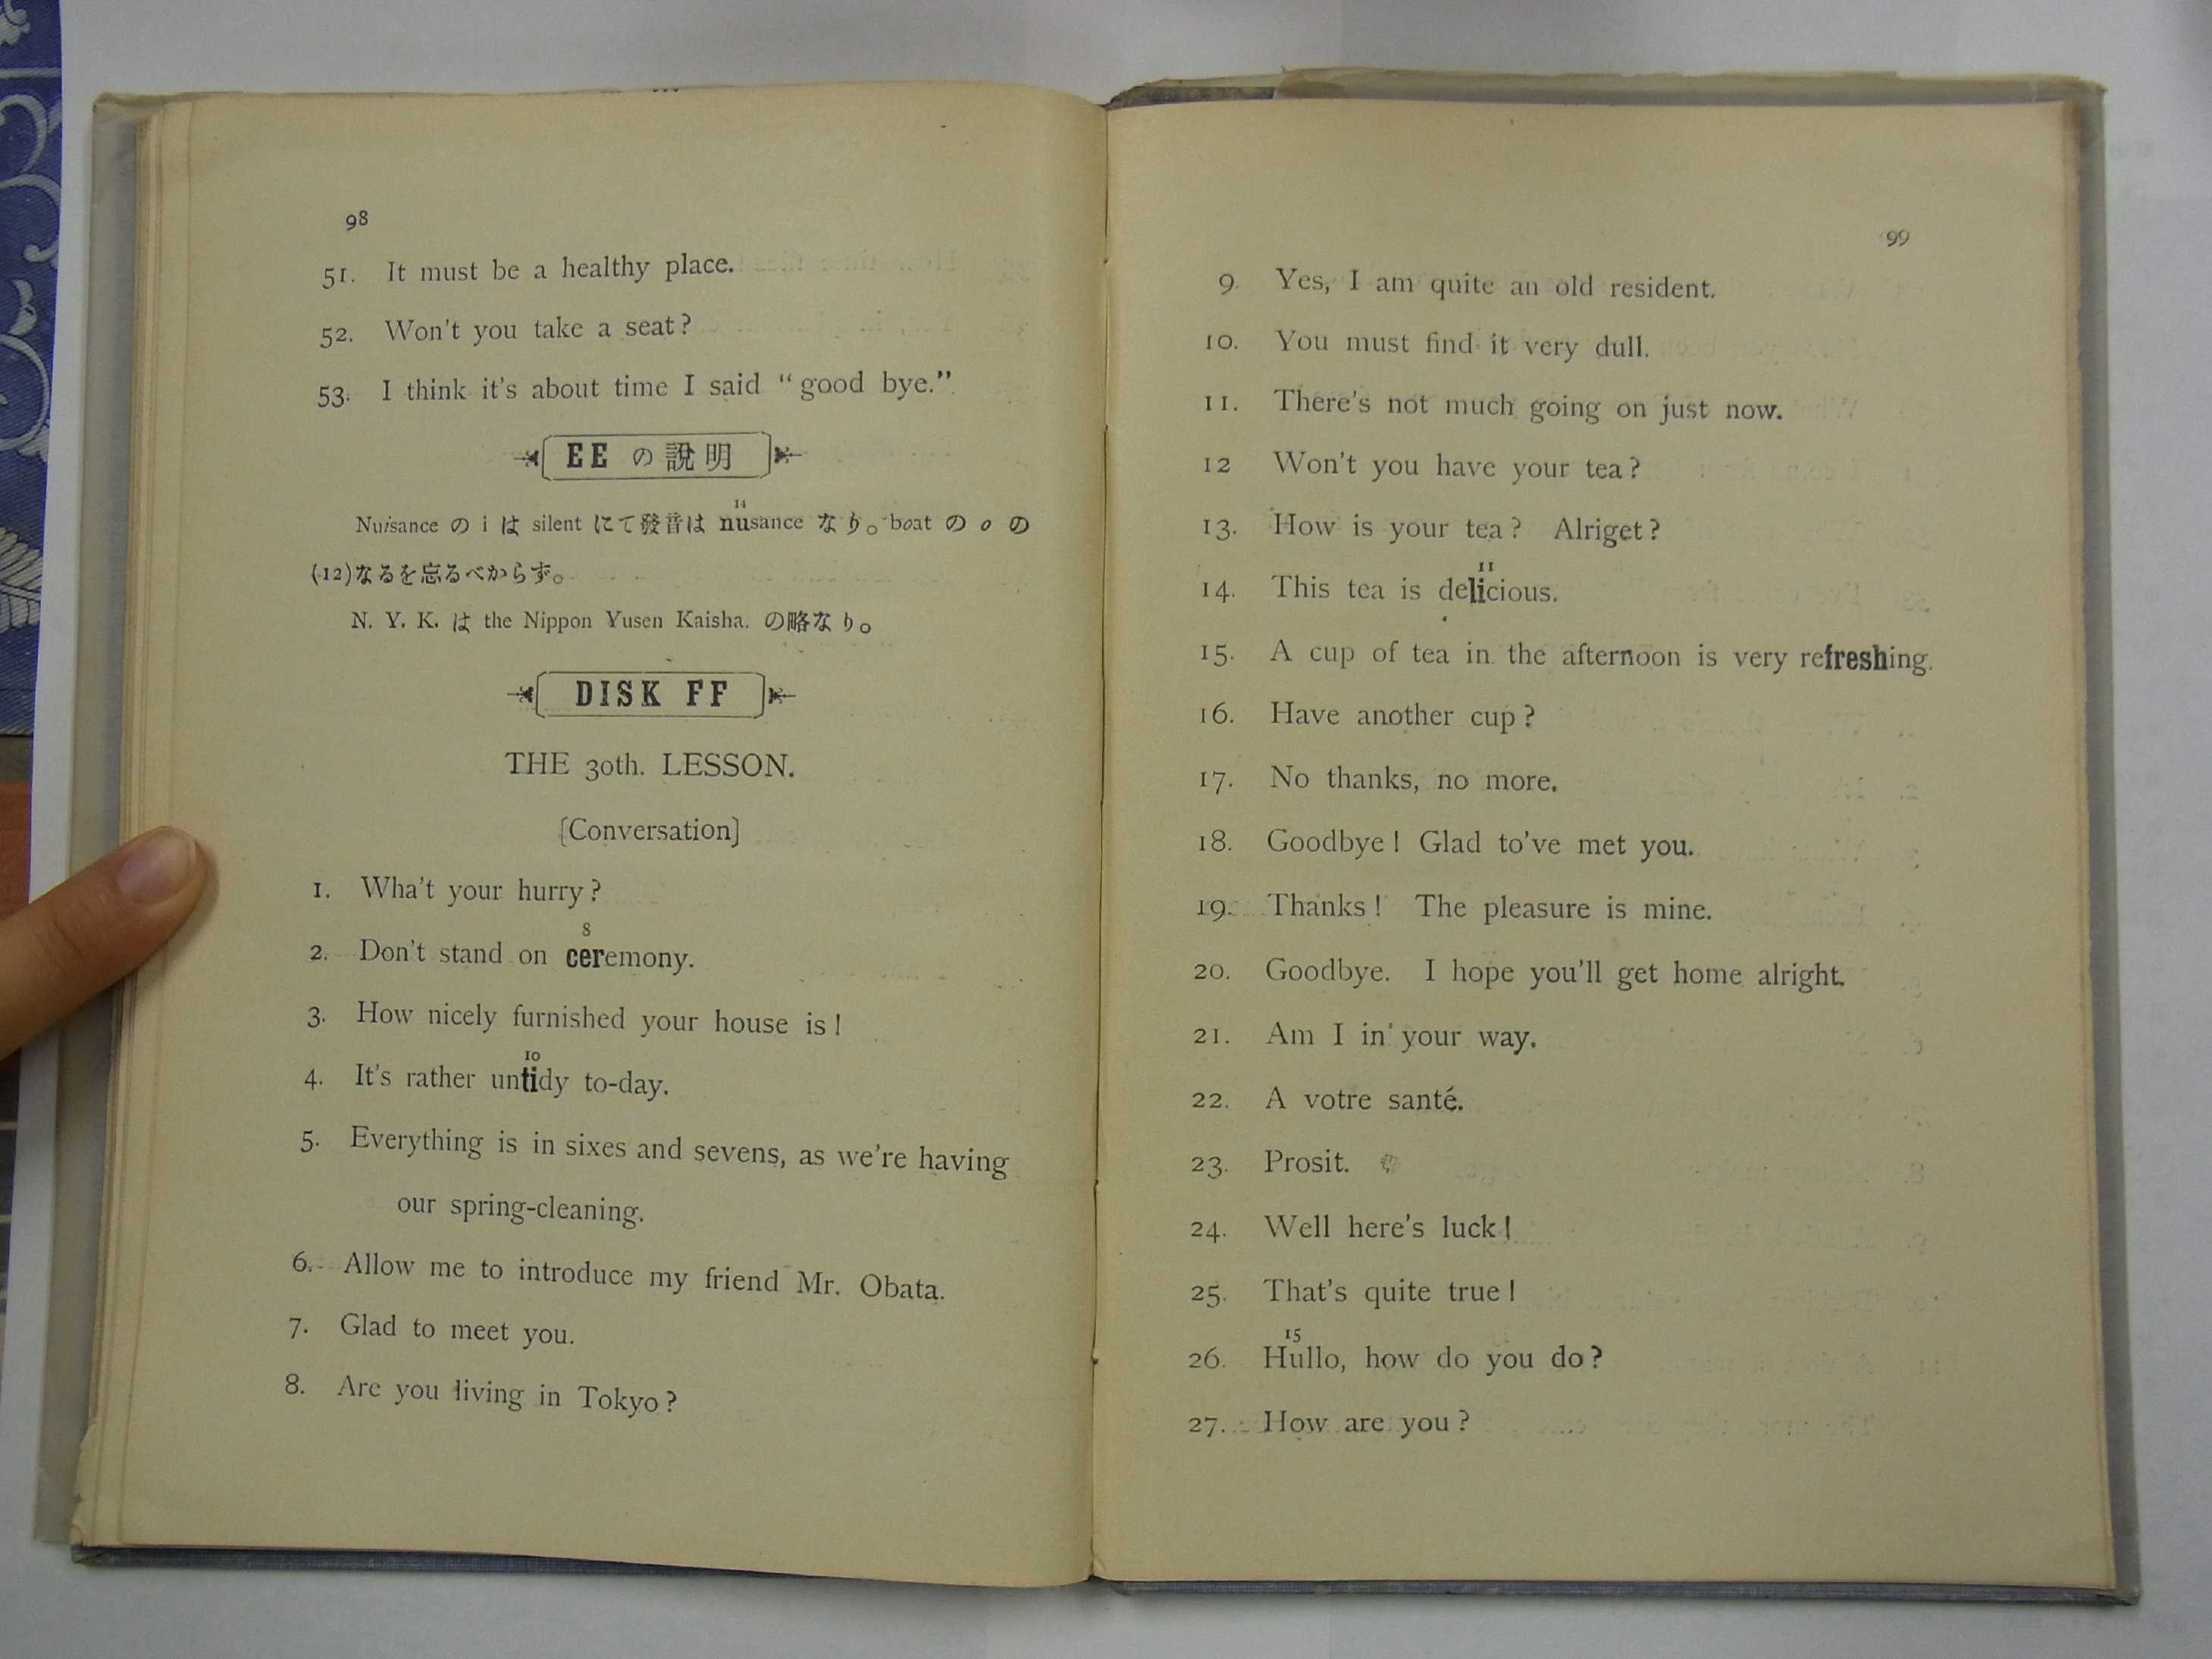 98
51. It must be a healthy place.
52. Won't you take a seat?
53. I think it's about time I said "good bye."
EE の說明
14
Nuisance の i は silent にて發音は nusance なり。boat の o の
(12)なるを忘るべからず。
N. Y. K. は the Nippon Yusen Kaisha. の略なり。
DISK FF
THE 30th. LESSON.
[Conversation]
1. Wha't your hurry?
8
2. Don't stand on ceremony.
3. How nicely furnished your house is!
10
4. It's rather untidy to-day.
5. Everything is in sixes and sevens, as we're having
our spring-cleaning.
6. Allow me to introduce my friend Mr. Obata.
7. Glad to meet you.
8. Are you living in Tokyo?
99
9. Yes, I am quite an old resident.
10. You must find it very dull.
11. There's not much going on just now.
12 Won't you have your tea?
13. How is your tea? Alriget?
11
14. This tea is delicious.
15. A cup of tea in the afternoon is very refreshing.
16. Have another cup?
17. No thanks, no more.
18. Goodbye! Glad to've met you.
19. Thanks! The pleasure is mine.
20. Goodbye. I hope you'll get home alright.
21. Am I in your way.
22. A votre santé.
23. Prosit.
24. Well here's luck!
25. That's quite true!
15
26. Hullo, how do you do?
27. How are you?